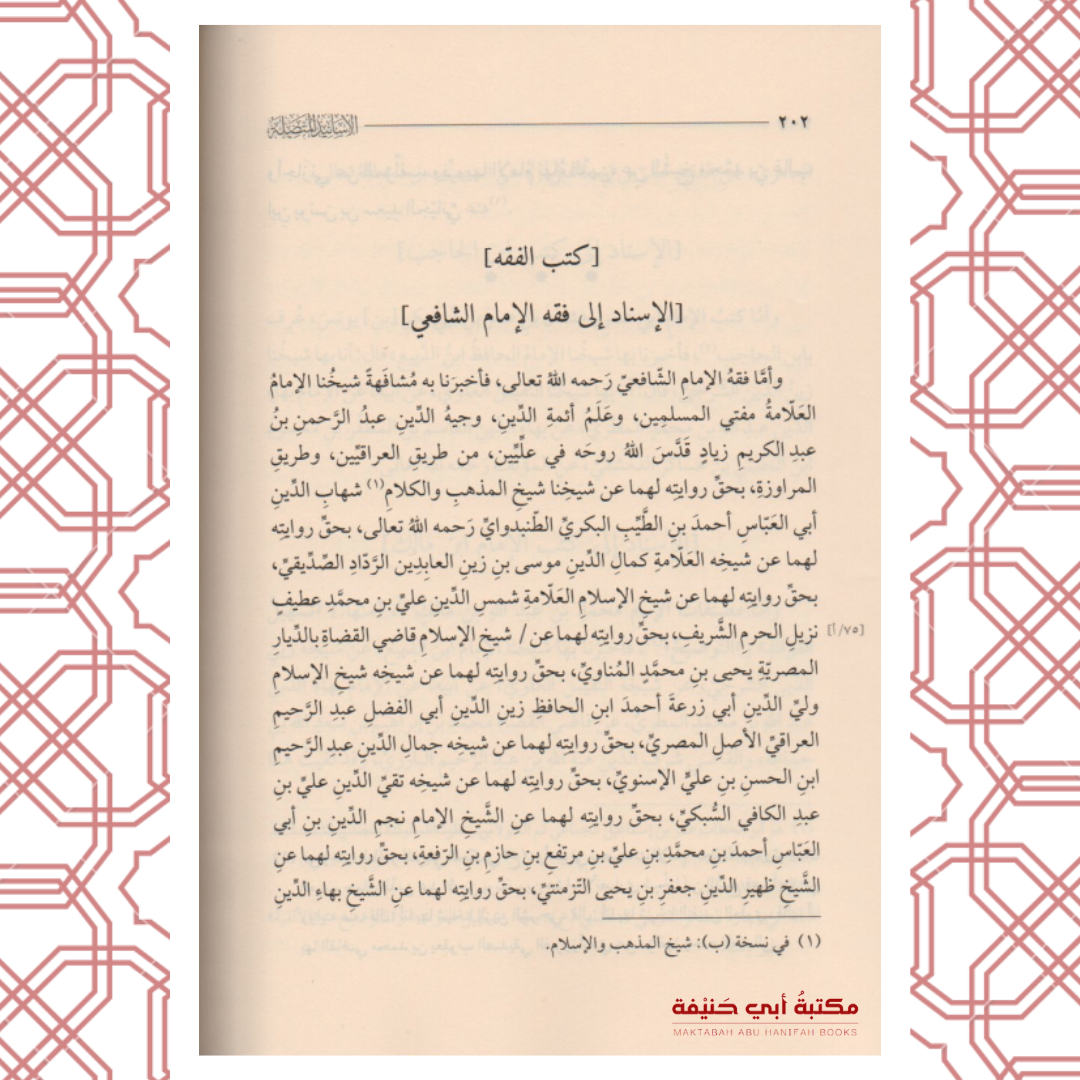 ٢٠٢ الأسانيد المتصلة
[كتب الفقه]
[الإسناد إلى فقه الإمام الشافعي]
وأمَّا فقهُ الإمامِ الشّافعيّ رَحمه اللهُ تعالى، فأخبرَنا به مُشافَهةً شيخُنا الإمامُ
العَلّامةُ مفتي المسلمِين، وعَلَمُ أئمةِ الدِّينِ، وجيهُ الدِّينِ عبدُ الرَّحمنِ بنُ
عبدِ الكريمِ زيادٍ قَدَّسَ اللهُ روحَه في علِّيِّين، من طريقِ العراقيّين، وطريقِ
المراوزةِ، بحقِّ روايتِه لهما عن شيخِنا شيخِ المذهبِ والكلامِ(١) شهابِ الدِّينِ
أبي العَبّاسِ أحمدَ بنِ الطَّيِّبِ البكريِّ الطّنبداويِّ رَحمه اللهُ تعالى، بحقِّ روايتِه
لهما عن شيخِه العَلّامةِ كمالِ الدِّينِ موسى بنِ زينِ العابِدِين الرَّدّادِ الصِّدِّيقيِّ،
بحقِّ روايتِه لهما عن شيخِ الإسلامِ العَلّامةِ شمسِ الدِّينِ عليِّ بنِ محمَّدِ عطيفٍ
نزيلِ الحرمِ الشَّريفِ، بحقِّ روايتِه لهما عن/ شيخِ الإسلامِ قاضي القضاةِ بالدِّيارِ [٧٥/أ]
المصريّةِ يحيى بنِ محمَّدٍ المُناويِّ، بحقِّ روايتِه لهما عن شيخِه شيخِ الإسلامِ
وليِّ الدِّينِ أبي زرعةَ أحمدَ ابنِ الحافظِ زينِ الدِّينِ أبي الفضلِ عبدِ الرَّحيمِ
العراقيِّ الأصلِ المصريِّ، بحقِّ روايتِه لهما عن شيخِه جمالِ الدِّينِ عبدِ الرَّحيمِ
ابنِ الحسنِ بنِ عليٍّ الإسنويِّ، بحقِّ روايتِه لهما عن شيخِه تقيِّ الدِّينِ عليِّ بنِ
عبدِ الكافي السُّبكيِّ، بحقِّ روايتِه لهما عنِ الشَّيخِ الإمامِ نجمِ الدِّينِ بنِ أبي
العَبّاسِ أحمدَ بنِ محمَّدِ بنِ عليِّ بنِ مرتفعِ بنِ حازمِ بنِ الرِّفعةِ، بحقِّ روايتِه لهما عنِ
الشَّيخِ ظهيرِ الدِّينِ جعفرِ بنِ يحيى التّزمنتيِّ، بحقِّ روايتِه لهما عنِ الشَّيخِ بهاءِ الدِّينِ
(١) في نسخة (ب): شيخ المذهب والإسلام.
مكتبةُ أبي حَنيْفة
MAKTABAH ABU HANIFAH BOOKS